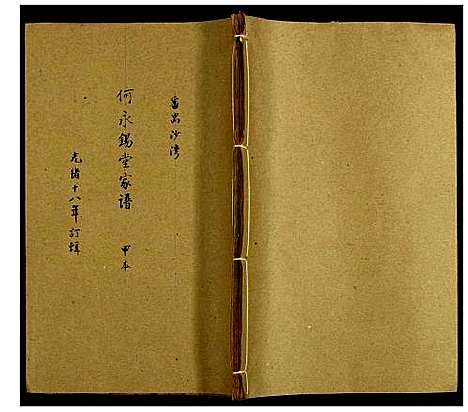 番禺沙湾
何永锡堂家谱 甲本
光绪十八年订辑